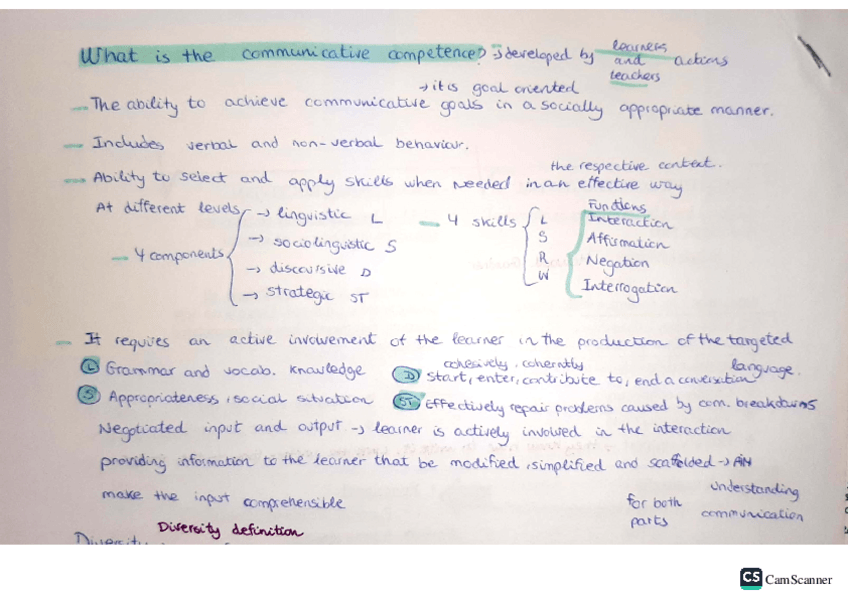 What is the communicative competence? → developed by learners and teachers actions
→ it is goal oriented
- The ability to achieve communicative goals in a socially appropriate manner.
- Includes verbal and non-verbal behaviour.
the respective context.
- Ability to select and apply skills when needed in an effective way
At different levels
- 4 components
→ linguistic L
→ sociolinguistic S
→ discursive D
→ strategic ST
- 4 skills
L
S
R
W
Functions
Interaction
Affirmation
Negation
Interrogation
- It requires an active involvement of the learner in the production of the targeted language.
L Grammar and vocab. knowledge
cohesively, coherently
D start, enter, contribute to, end a conversation
S Appropriateness, social situation
ST Effectively repair problems caused by com. breakdowns
Negotiated input and output → learner is actively involved in the interaction
providing information to the learner that be modified, simplified and scaffolded → AIM
make the input comprehensible
understanding
for both parts
communication
Diversity definition
Diversity
CS CamScanner